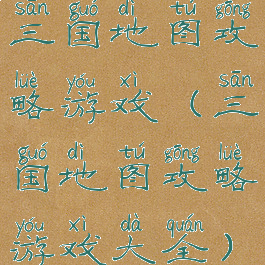 sān guó dì tú gōng
三国地图攻
lüè yóu xì sān
略游戏(三
guó dì tú gōng lüè
国地图攻略
yóu xì dà quán
游戏大全)